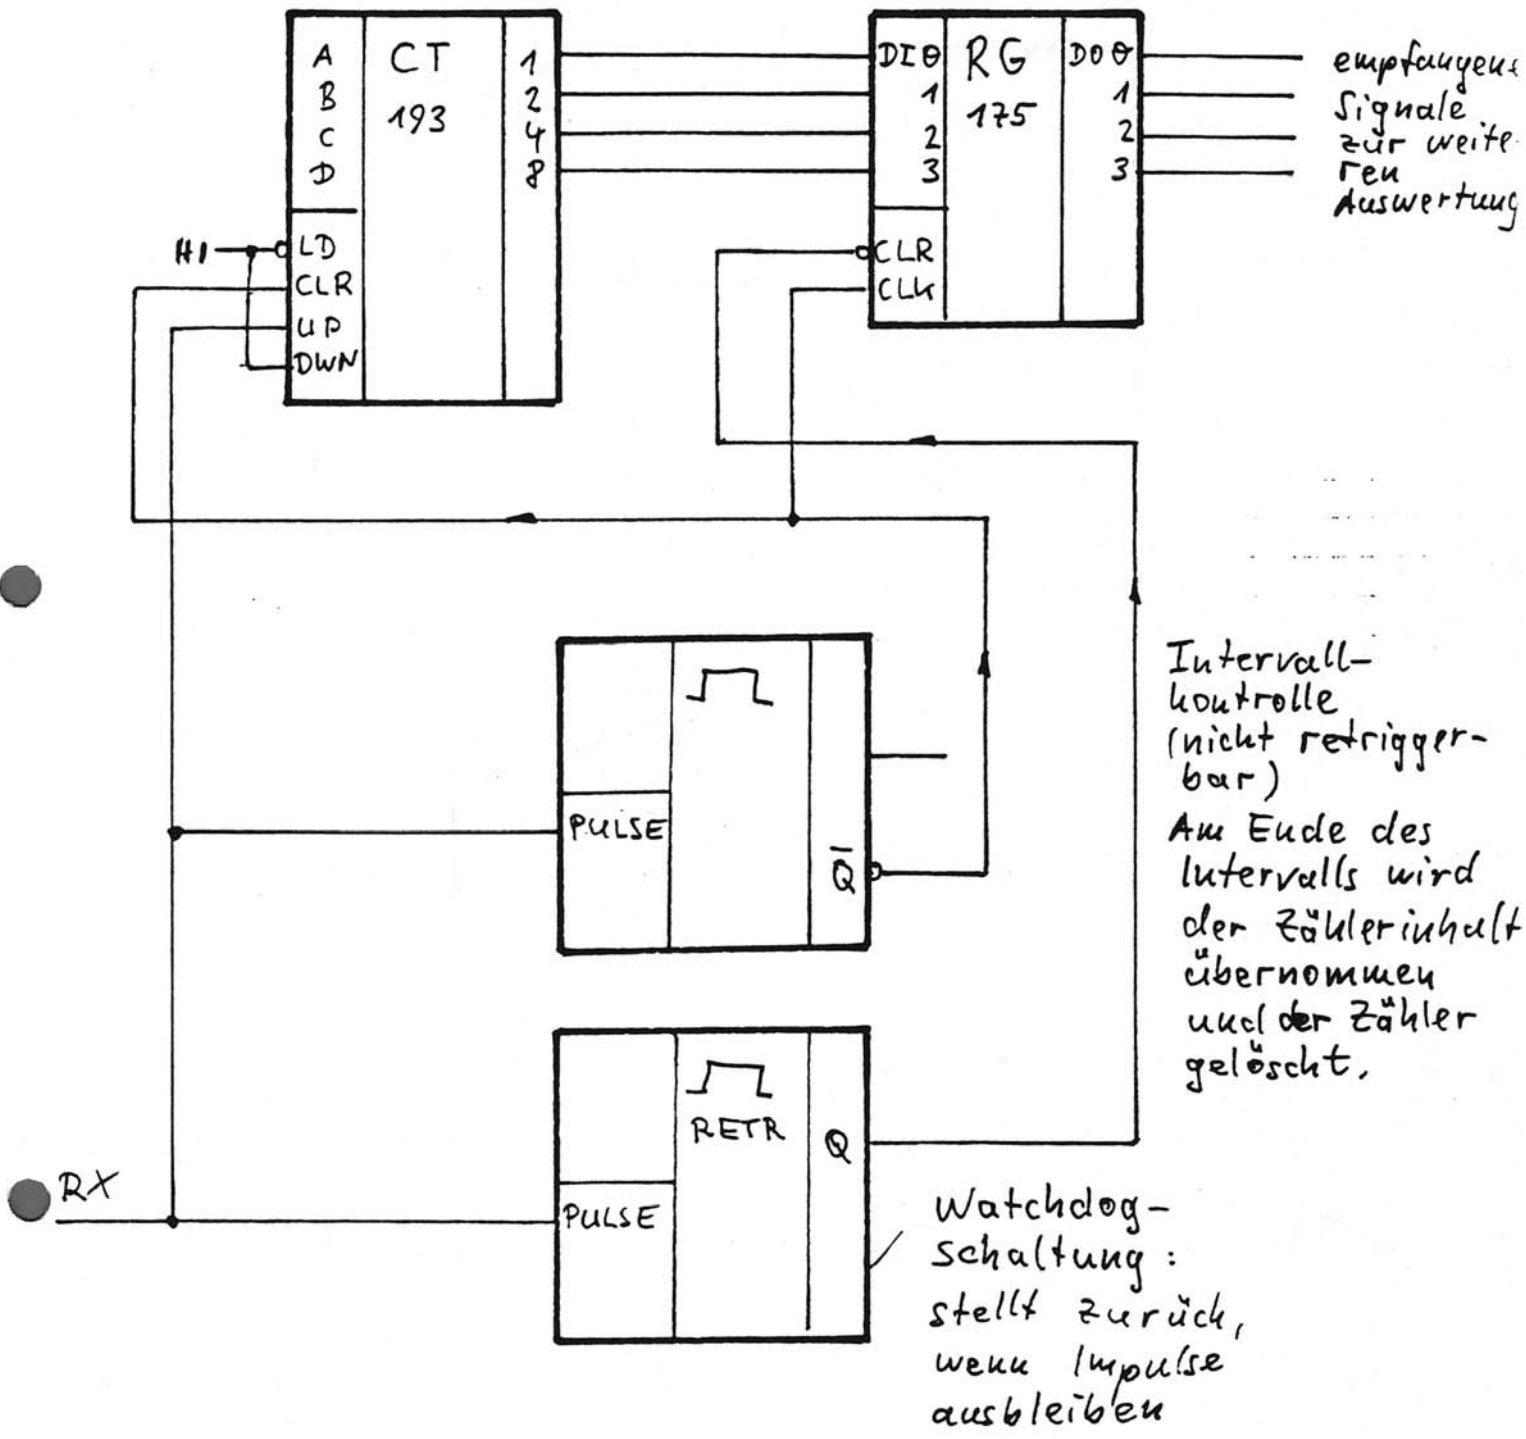 A
B
C
D
CT
193
1
2
4
8
HI
LD
CLR
UP
DWN
DI0
1
2
3
RG
175
DO0
1
2
3
CLR
CLK
empfangene
Signale
zur weite-
ren
Auswertung
PULSE
Q̅
Intervall-
kontrolle
(nicht retrigger-
bar)
Am Ende des
Intervalls wird
der Zählerinhalt
übernommen
und der Zähler
gelöscht.
RX
PULSE
RETR
Q
Watchdog-
schaltung:
stellt zurück,
wenn Impulse
ausbleiben